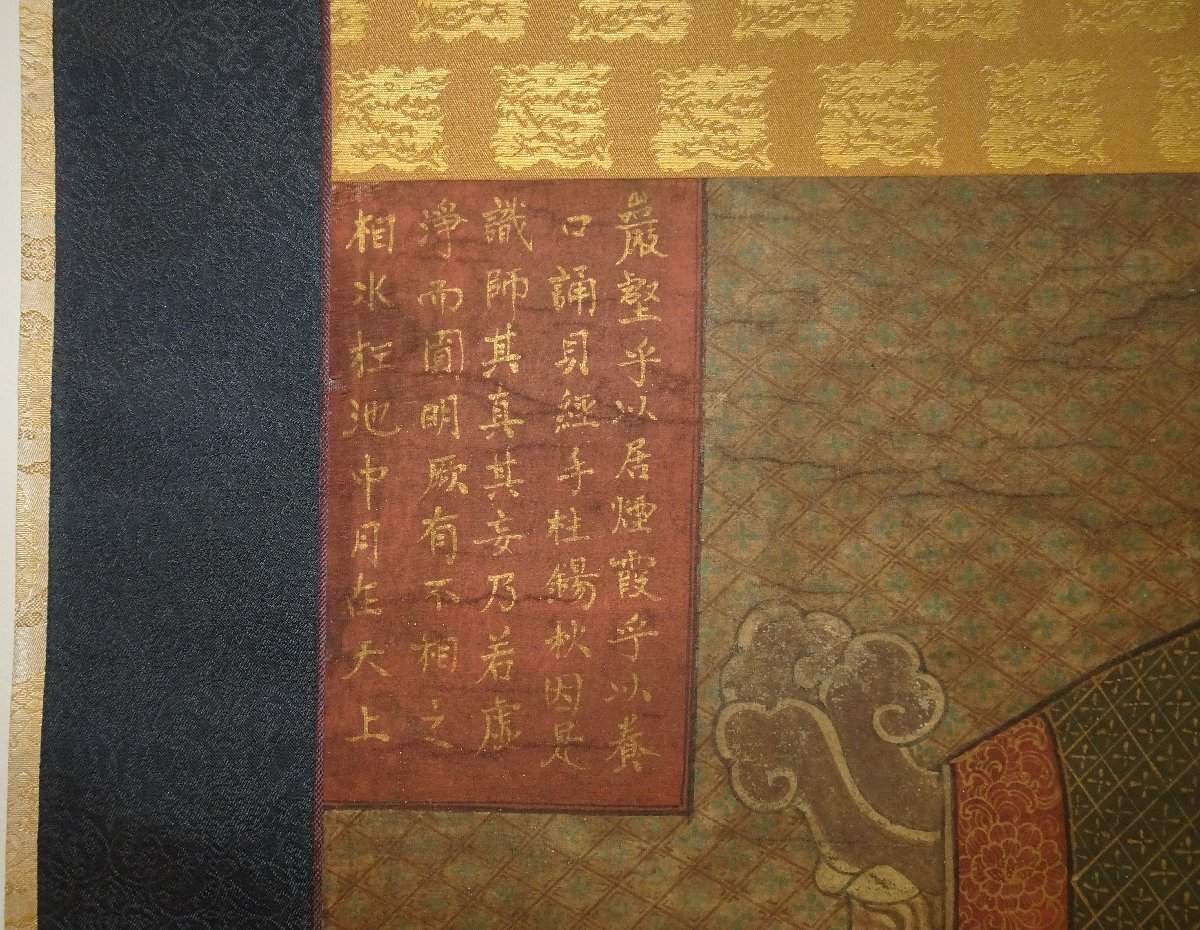 巖壑乎以居煙霞乎以養
口誦貝經手柱錫杖因是
識師其真其妄乃若虛
淨而圓明厥有不相之
相水在池中月在天上